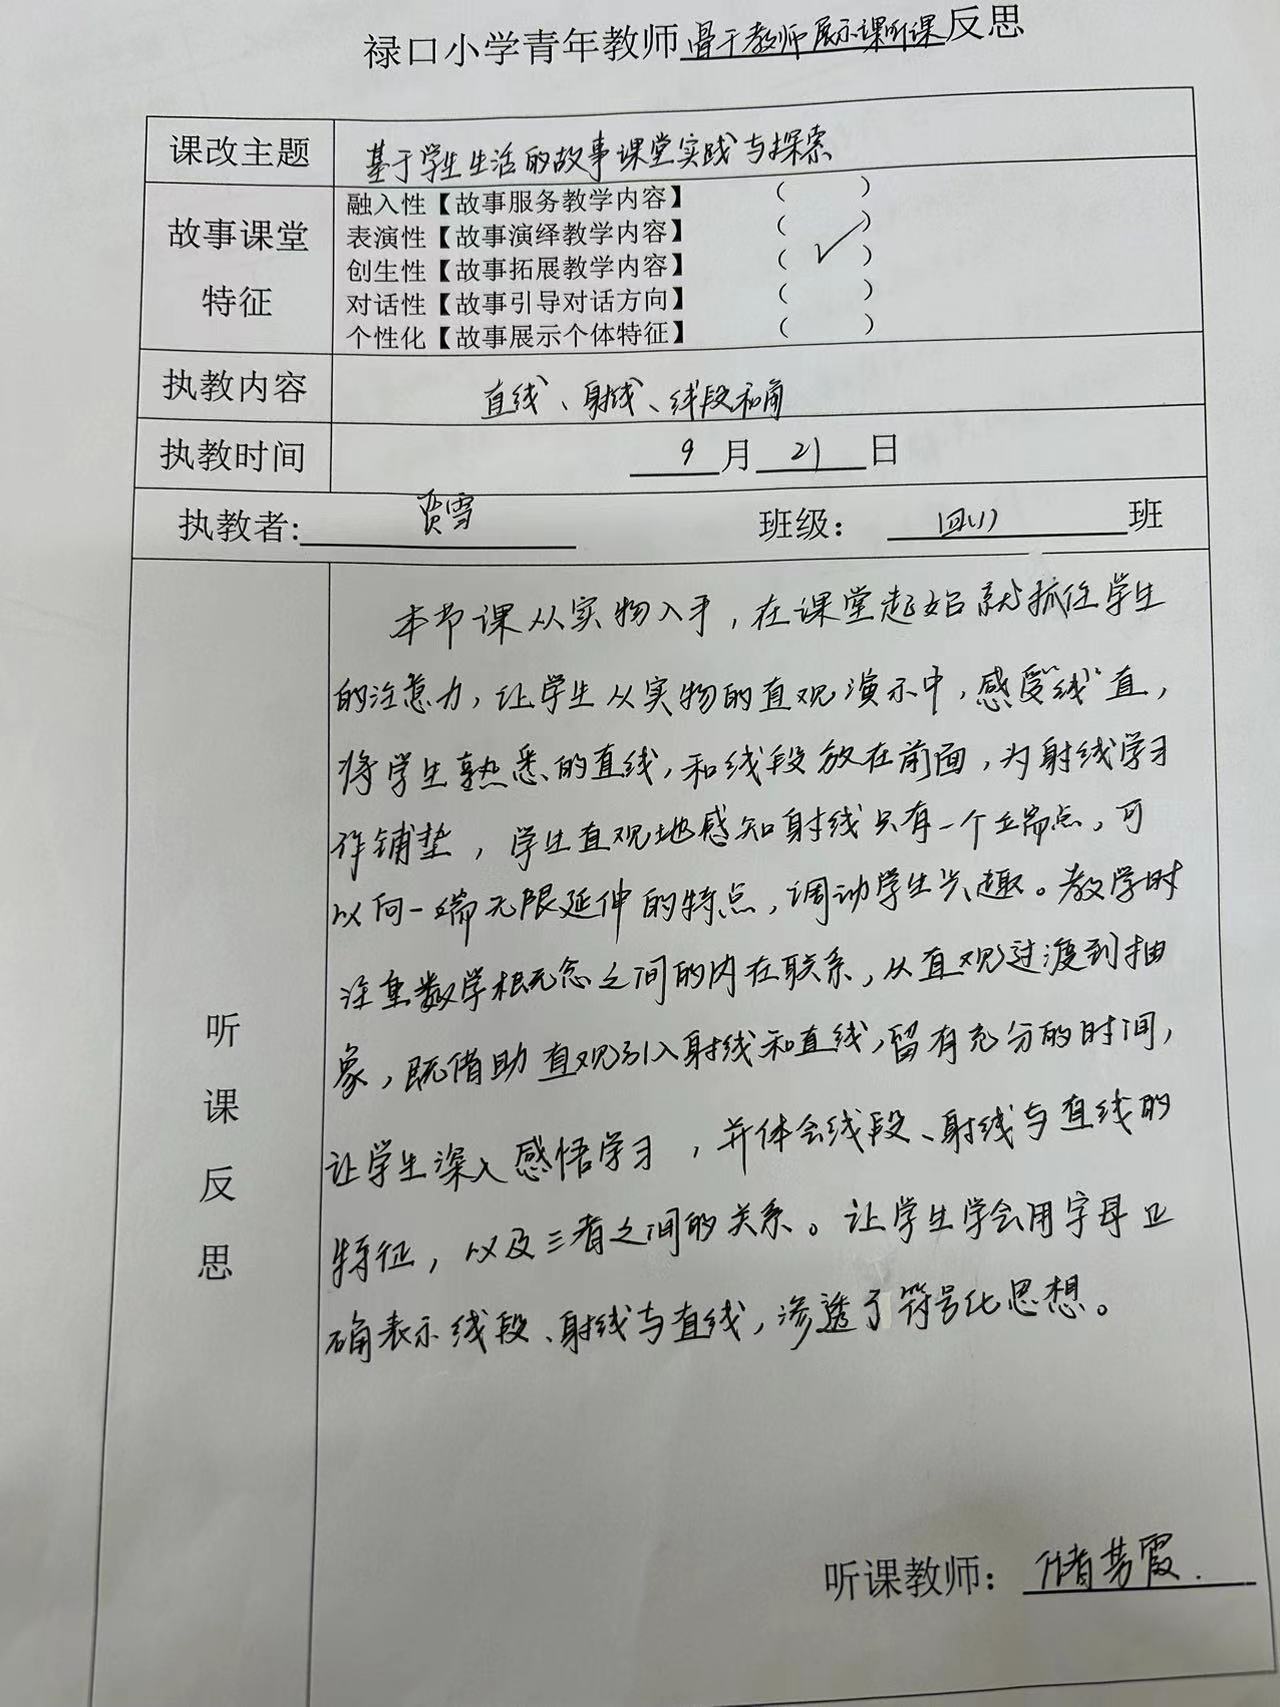 禄口小学青年教师骨干教师展示课听课反思
课改主题 基于学生生活的故事课堂实践与探索
故事课堂特征
融入性【故事服务教学内容】 （ ）
表演性【故事演绎教学内容】 （ ）
创生性【故事拓展教学内容】 （ √ ）
对话性【故事引导对话方向】 （ ）
个性化【故事展示个体特征】 （ ）
执教内容 直线、射线、线段和角
执教时间 9月21日
执教者:贾雪 班级：四(1)班
听课反思
本节课从实物入手，在课堂起始就抓住学生
的注意力，让学生从实物的直观演示中，感受“线”直，
将学生熟悉的直线，和线段放在前面，为射线学习
作铺垫，学生直观地感知射线只有一个端点，可
以向一端无限延伸的特点，调动学生兴趣。教学时
注重数学概念之间的内在联系，从直观过渡到抽
象，既借助直观引入射线和直线，留有充分的时间，
让学生深入感悟学习，并体会线段、射线与直线的
特征，以及三者之间的关系。让学生学会用字母正
确表示线段、射线与直线，渗透了符号化思想。
听课教师：储芳霞.